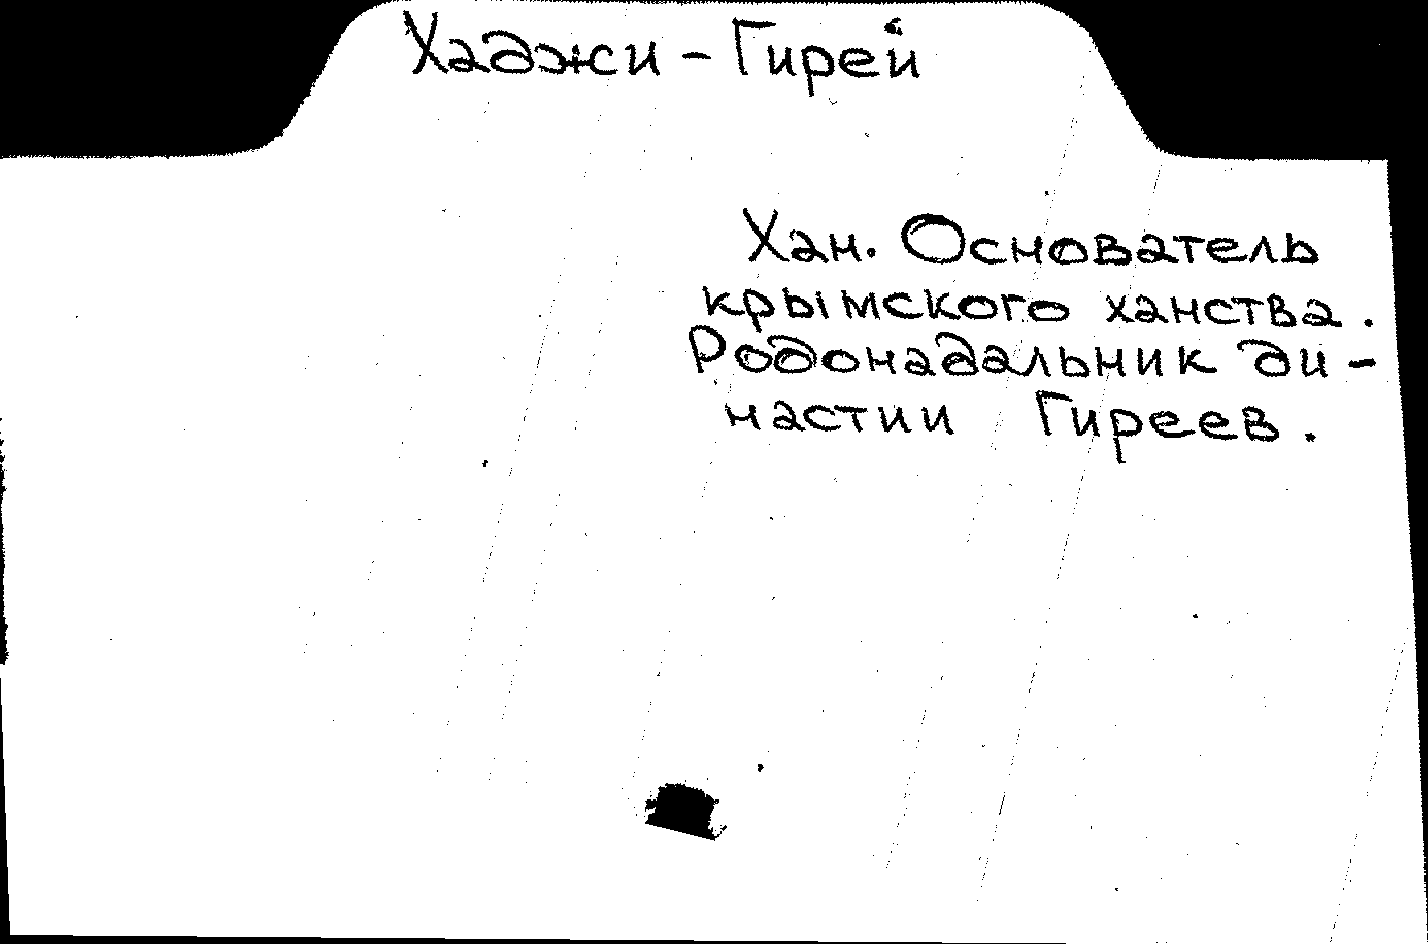 Хаджи - Гирей
Хан. Основатель
крымского ханства.
Родонадальник ди-
настии Гиреев.